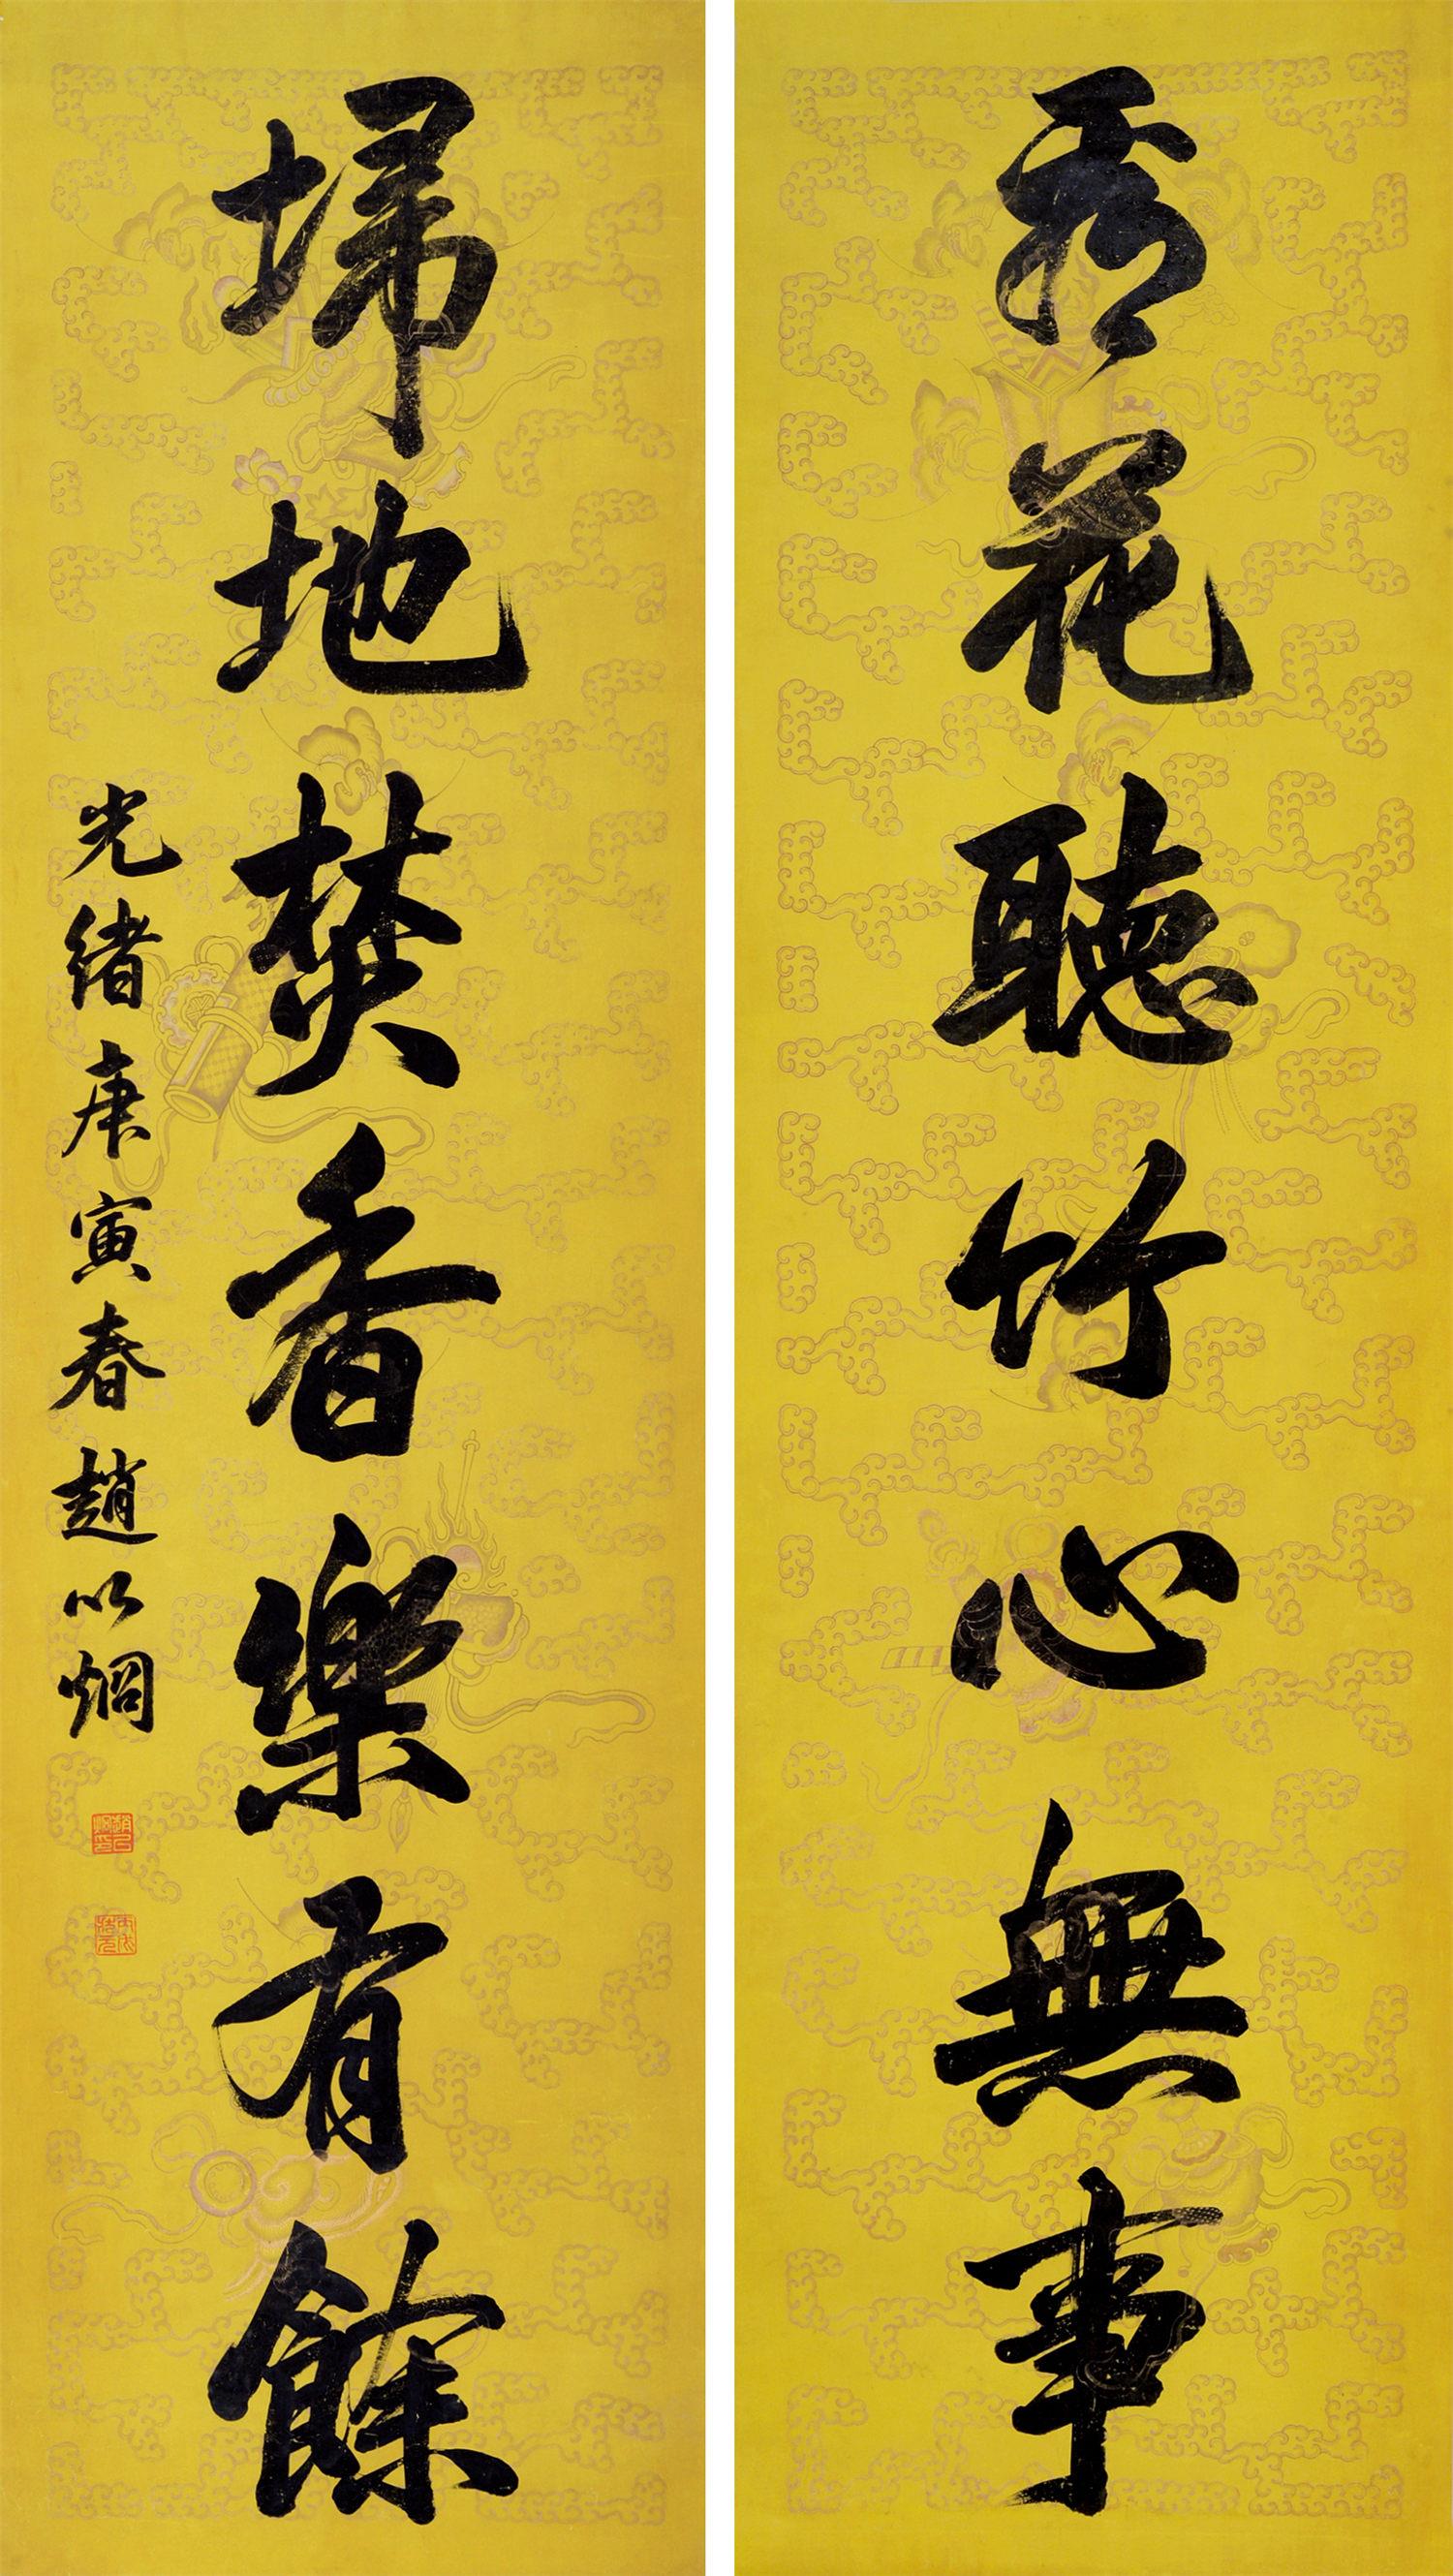 看花聽竹心無事
埽地焚香樂有餘
光緒庚寅春趙以烱